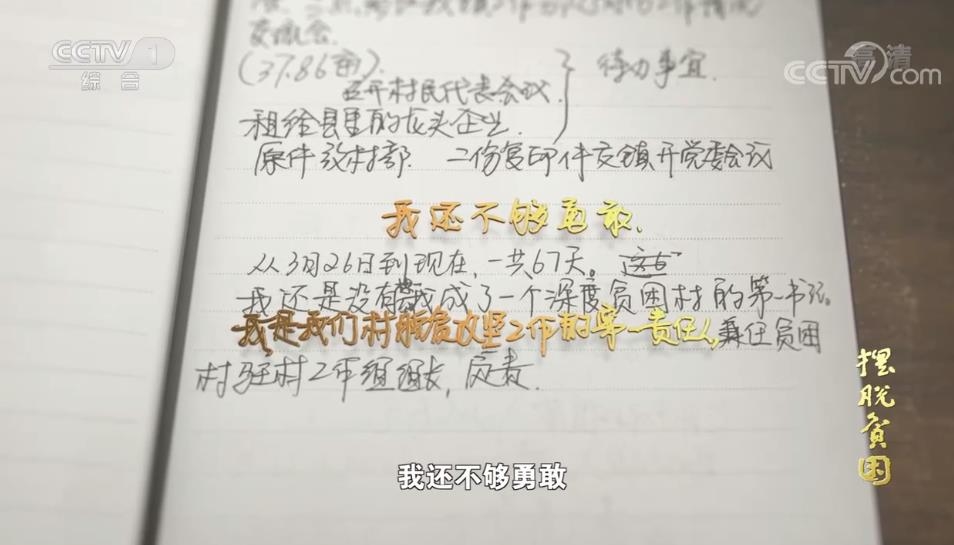 CCTV 1
综合
高清
CCTV.com
交流会.
(37.86亩).
召开村民代表会议.
租给县里的龙头企业.
待办事宜.
原件放村部. 二份复印件交镇开党委会议
我还不够勇敢.
从3月26日到现在,一共67天。
我还是没有 成了一个深度贫困村的第一书记。
我是我们村脱贫攻坚工作的第一责任人,兼任贫困
村驻村工作组组长,
摆脱贫困
我还不够勇敢